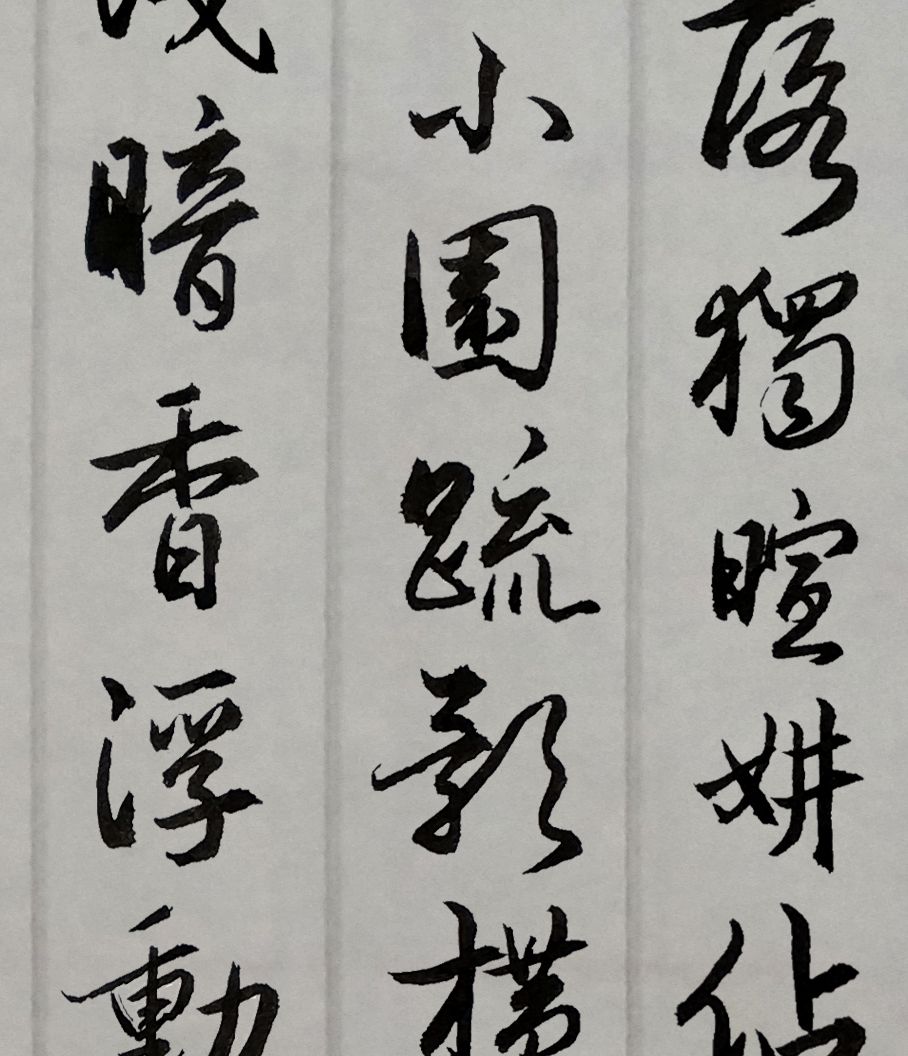 落獨暄妍佔
小園疏影橫
淺暗香浮動